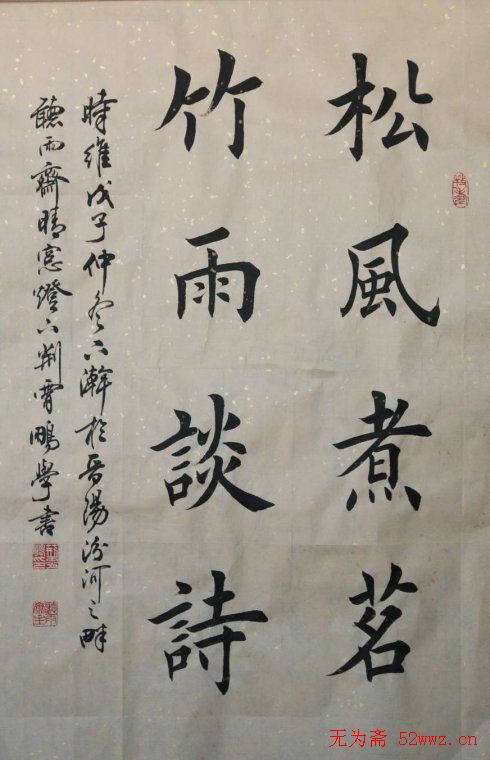 松風煮茗
竹雨談詩
時維戊子仲冬下澣於晋陽汾河之畔
聽雨齋晴窓燈下荆霄鵬學書
无为斋 52wwz.cn